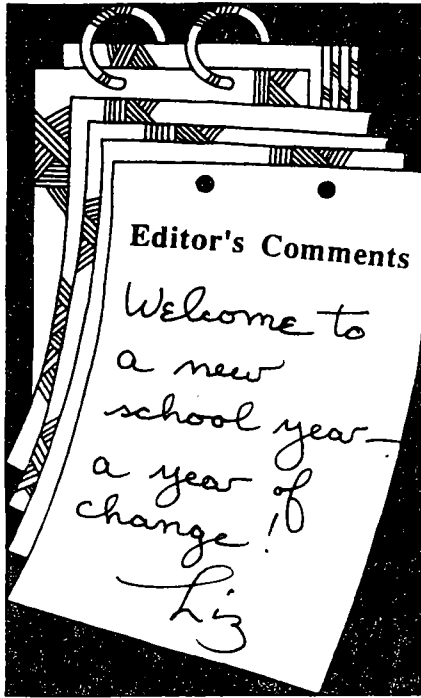 Editor's Comments
Welcome to
a new
school year—
a year of
change!
Liz